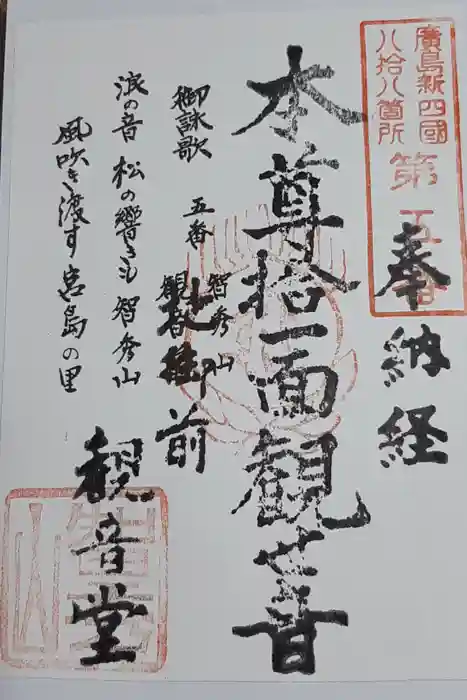 廣島新四國
八拾八箇所
第五
奉納経
本尊拾一面観世音
智秀山
御詠歌 五番
観音
地御前
浪の音 松の響きも 智秀山
風吹き渡す 宮島の里
観音堂